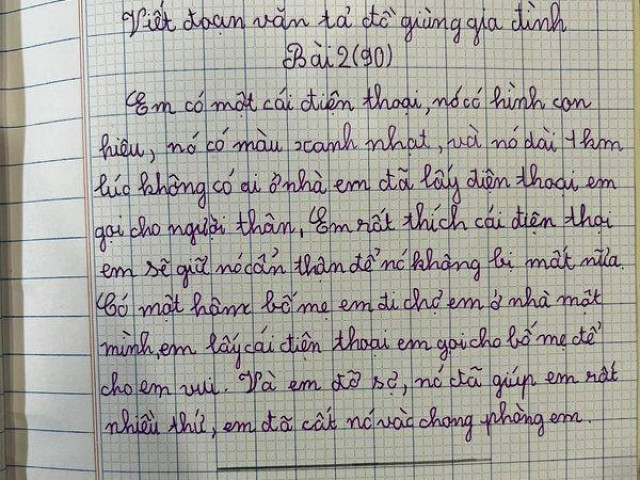 Viết đoạn văn tả đồ dùng gia đình
Bài 2 (90)
Em có một cái điện thoại, nó có hình con
hiêu, nó có màu xanh nhạt, và nó dài 14cm
lúc không có ai ở nhà em đã lấy điện thoại em
gọi cho người thân, Em rất thích cái điện thoại
em sẽ giữ nó cẩn thận để nó không bị mất nữa.
Có một hôm bố mẹ em đi chợ em ở nhà một
mình, em lấy cái điện thoại em gọi cho bố mẹ để
cho em vui. Và em đỡ sợ, nó đã giúp em rất
nhiều thứ, em đã cất nó vào chong phòng em.